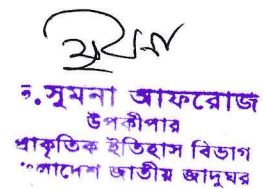 সুমনা
ড. সুমনা আফরোজ
উপকীপার
প্রাকৃতিক ইতিহাস বিভাগ
বাংলাদেশ জাতীয় জাদুঘর